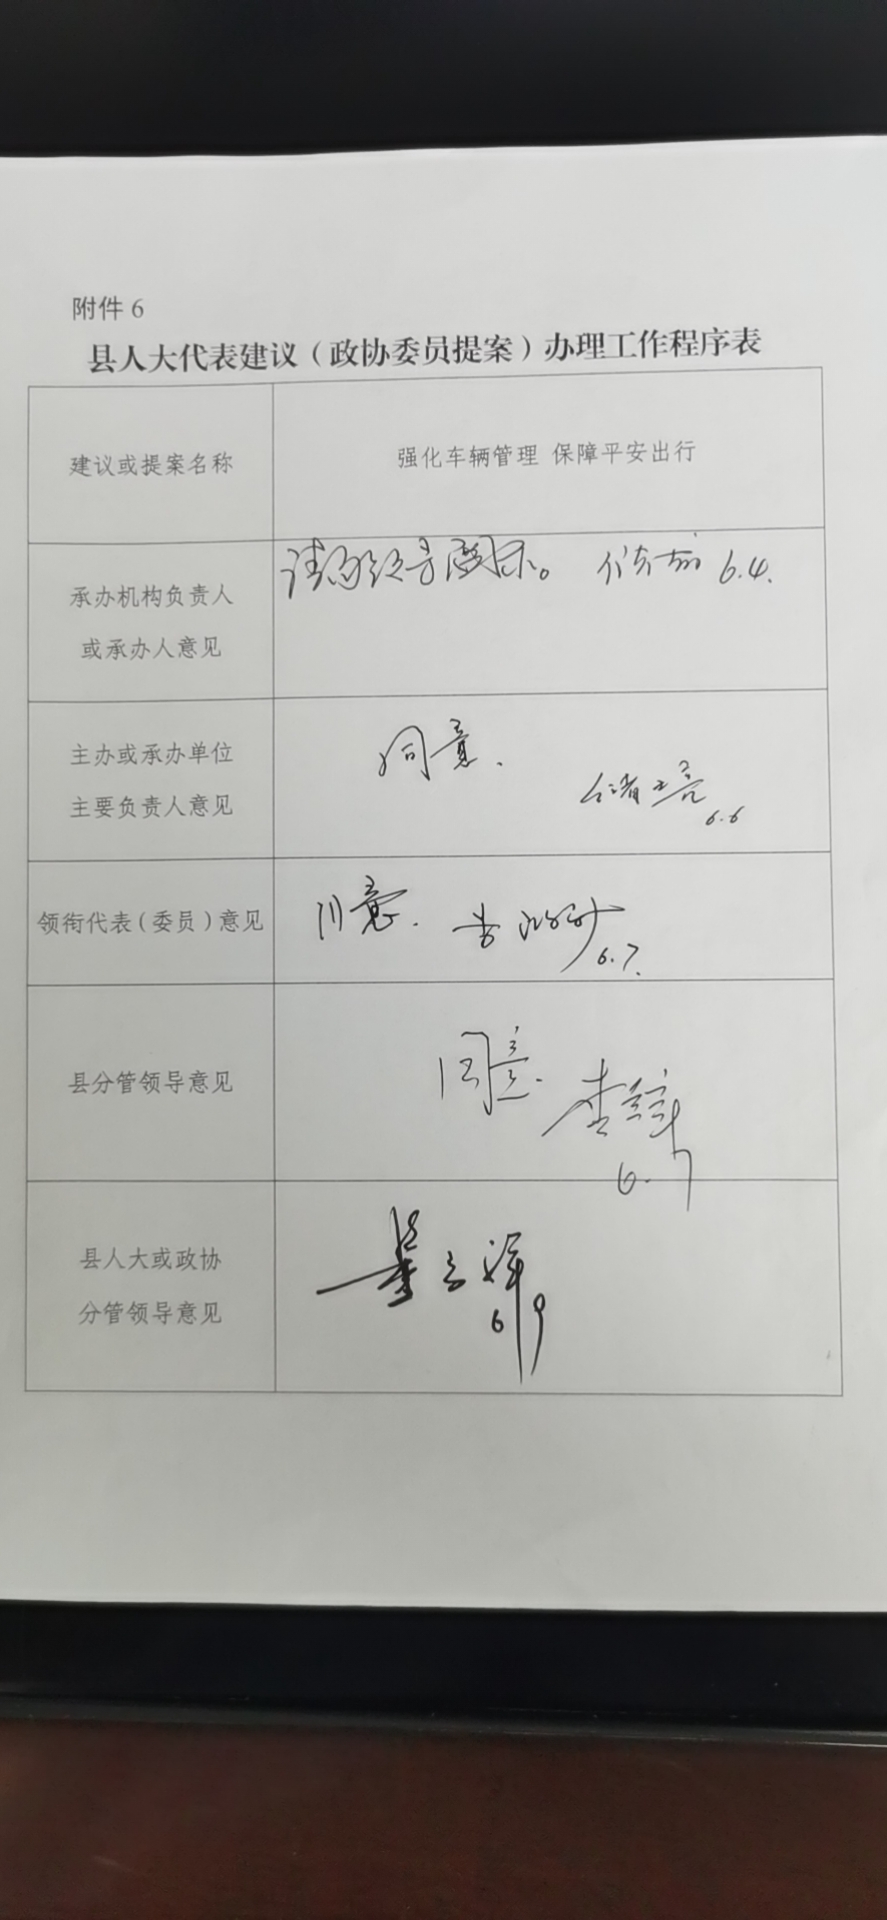 附件6
县人大代表建议（政协委员提案）办理工作程序表
建议或提案名称
强化车辆管理 保障平安出行
承办机构负责人
或承办人意见
请 领导阅示。 6.4.
主办或承办单位
主要负责人意见
同意.
6.6
领衔代表（委员）意见
同意.
6.7.
县分管领导意见
同意.
6.7
县人大或政协
分管领导意见
6.9